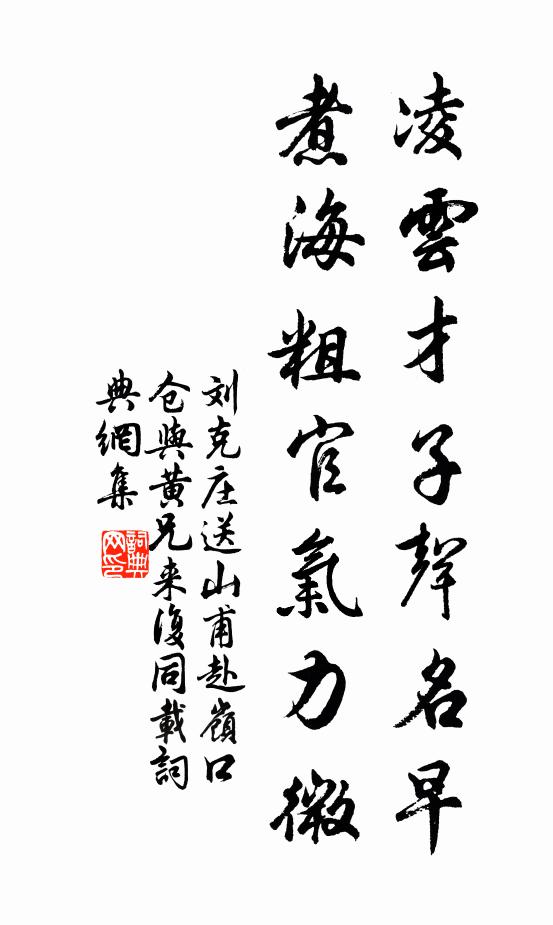 凌雲才子聲名早
煮海粗官氣力微
刘克庄送山甫赴嶺口
仓與黄兄来復同載詞
典網集
詞典网印